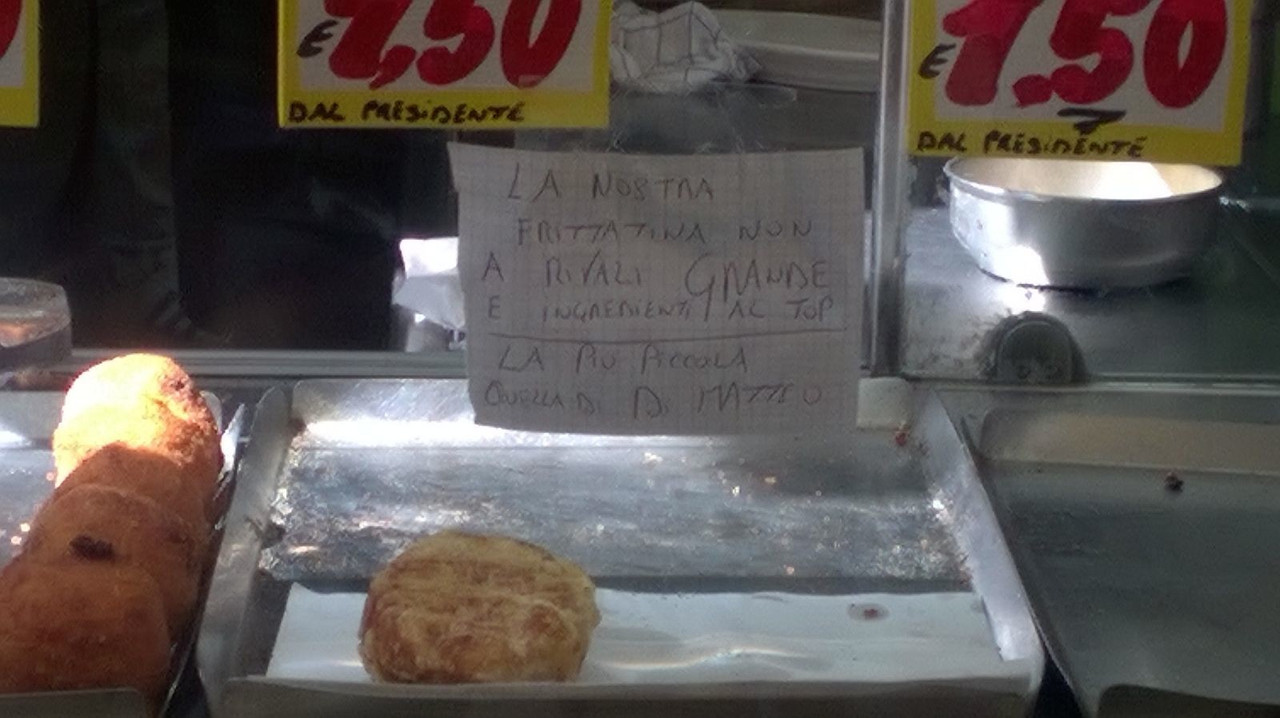 € 2,50
DAL PRESIDENTE
€ 1.50
DAL PRESIDENTE
LA NOSTRA
FRITTATINA NON
A RIVALI GRANDE
E INGREDIENTI AL TOP
LA PIU PICCOLA
QUELLA DI DI MATTEO